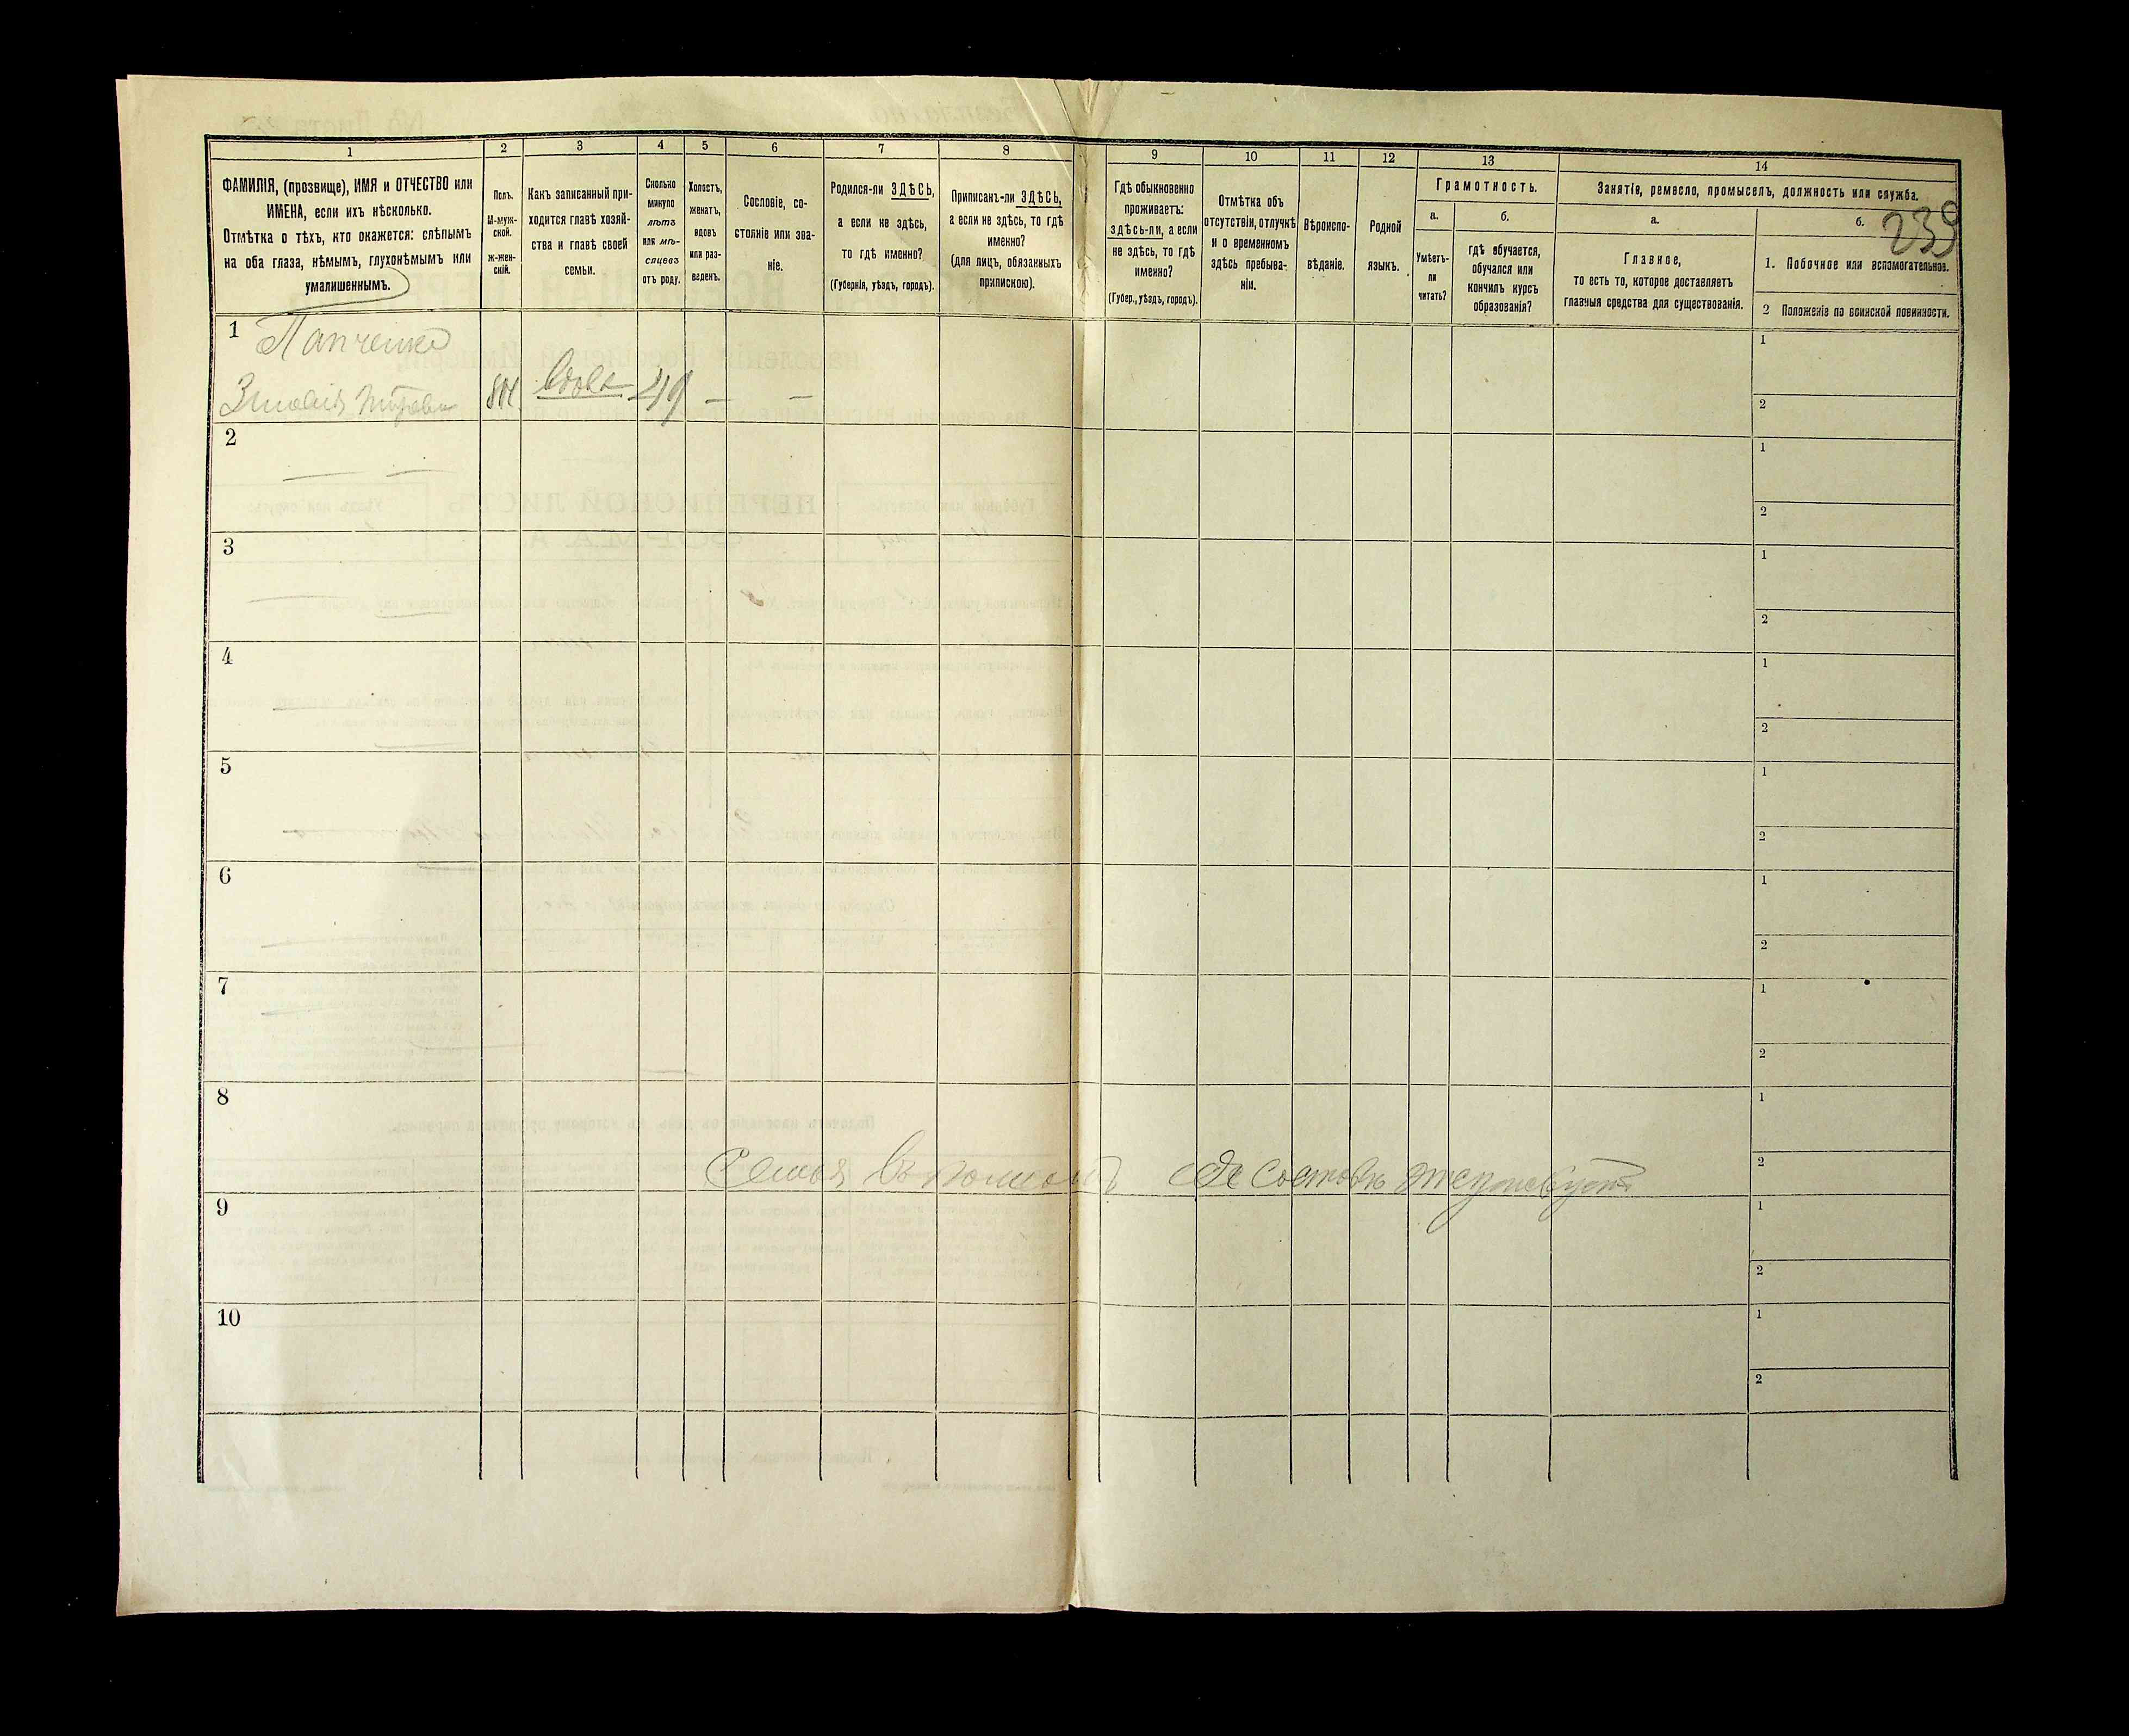 1
ФАМИЛІЯ, (прозвище), ИМЯ и ОТЧЕСТВО или
ИМЕНА, если ихъ нѣсколько.
Отмѣтка о тѣхъ, кто окажется: слѣпымъ
на оба глаза, нѣмымъ, глухонѣмымъ или
умалишеннымъ.
2
Полъ.
М-муж-
ской.
Ж-жен-
скій.
3
Какъ записанный при-
ходится главѣ хозяй-
ства и главѣ своей
семьи.
4
Сколько
минуло
лѣтъ
или мѣ-
сяцевъ
отъ роду.
5
Холостъ,
женатъ,
вдовъ
или раз-
веденъ.
6
Сословіе, со-
стояніе или зва-
ніе.
7
Родился-ли ЗДѢСЬ,
а если не здѣсь,
то гдѣ именно?
(Губернія, уѣздъ, городъ).
8
Приписанъ-ли ЗДѢСЬ,
а если не здѣсь, то гдѣ
именно?
(для лицъ, обязанныхъ
припискою).
9
Гдѣ обыкновенно
проживаетъ:
здѣсь-ли, а если
не здѣсь, то гдѣ
именно?
(Губер., уѣздъ, городъ).
10
Отмѣтка объ
отсутствіи, отлучкѣ
и о временномъ
здѣсь пребыва-
ніи.
11
Вѣроиспо-
вѣданіе.
12
Родной
языкъ.
13
Грамотность.
а.
Умѣетъ-
ли
читать?
б.
гдѣ обучается,
обучался или
кончилъ курсъ
образованія?
14
Занятіе, ремесло, промыселъ, должность или служба.
а.
Главное,
то есть то, которое доставляетъ
главныя средства для существованія.
б.
239
1. Побочное или вспомогательное.
2 Положеніе по воинской повинности.
1
Панченко
вдова 49 — —
1
2
2
1
2
3
1
2
4
1
2
5
1
2
6
1
2
7
1
2
8
1
Семья
2
9
1
2
10
1
2